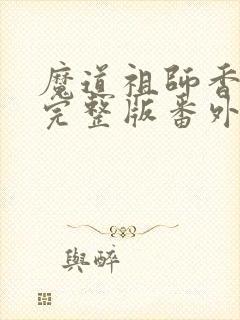 魔道祖師香
完整版番外
與醉